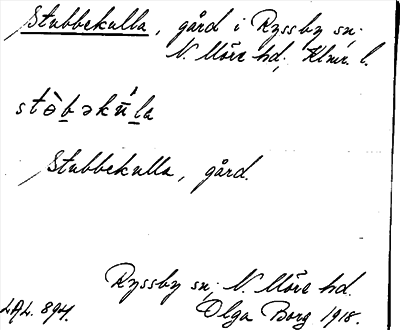 Stubbekulla, gård i Ryssby sn;
N. Möre hd; Klmr. l.
stə̀bəkū́la
Stubbekulla, gård.
Ryssby sn; N. Möre hd.
LAL. 894. Olga Borg 1918.